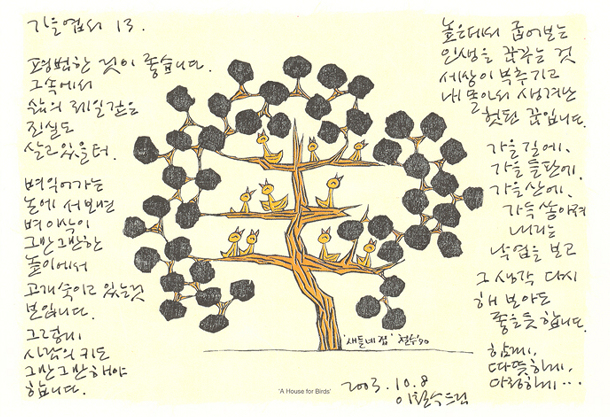 가을엽서 13.
평범한 것이 좋습니다.
그속에서
삶의 제일같은
진실도
살고있을터.
벼익어가는
논에 서보면
벼이삭이
그만그만한
높이에서
고개숙이고 있는것
보입니다.
그렇게
사람의 키도
그만그만해야
합니다.
높은데서 굽어보는
인생을 꿈꾸는 것
세상이 부추기고
내 몸이서 생겨난
헛된 꿈입니다.
가을길에,
가을들판에,
가을산에,
가득쏟아져
내리는
낙엽을 보고
그 생각 다시
해 보아도
좋을듯합니다.
함께,
따뜻하게,
다정하게…
'새들네집' 철수90
'A House for Birds'
2003.10.8
이철수드림